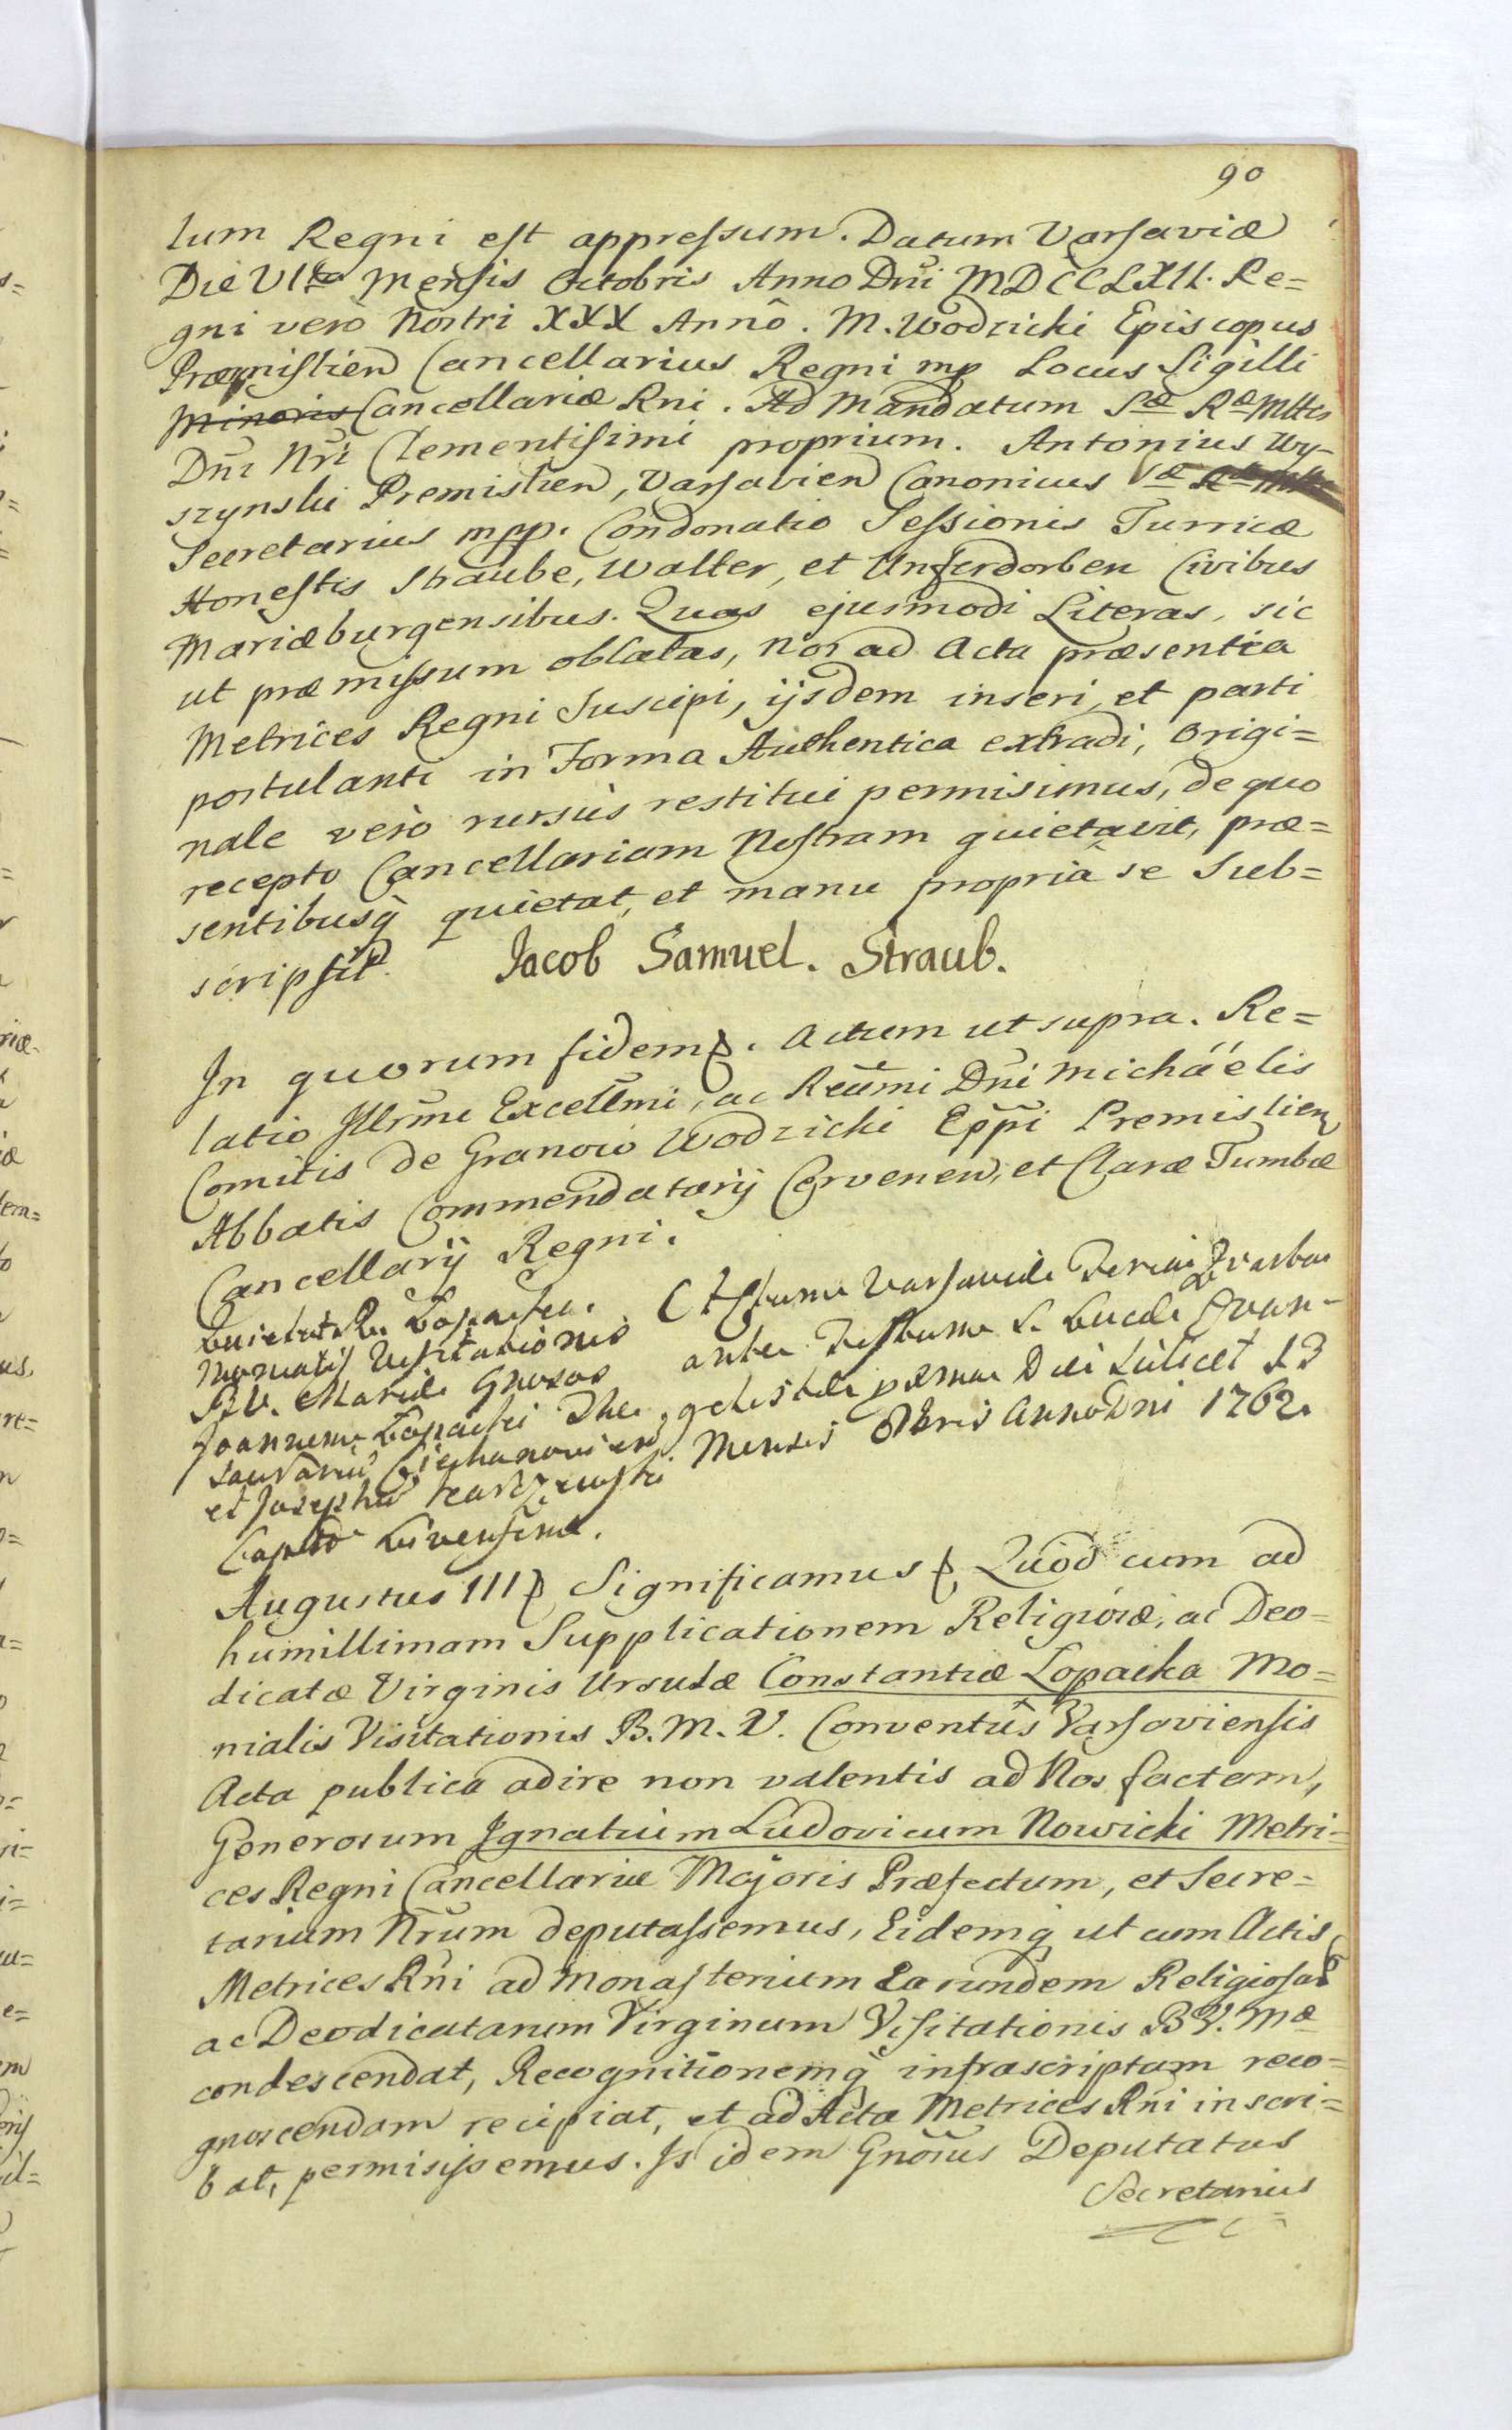 90
lum Regni est appressum. Datum Varsaviæ
Die VIta Mensis Octobris Anno Dni MDCCLXII. Re=
gni vero Nostri XXX Annô. M. Wodzicki Episcopus
Præmislien Cancellarius Regni mp Locus Sigilli
Minoris Cancellariæ Rni. Ad Mandatum Sæ Ræ Mttis
Dni Nri Clementissimi proprium. Antonius Wy-
szynski Premislien, Varsavien Canonicus Sæ Ræ Mttis
Secretarius mpp. Condonatio Sessionis Turricæ
Honestis Straube, Walter, et Unferdorben Civibus
Mariæburgensibus. Quas ejusmodi Literas, sic
ut præmissum oblatas, Nos ad Acta præsentia
Metrices Regni Suscipi, ijsdem inseri, et parti
postulanti in Forma Authentica extradi, Origi=
nale verò rursùs restitui permisimus, de quo
recepto Cancellariam Nostram quietavit, præ=
sentibusq quietat, et manu propriâ se Sub=
scripsit. Jacob Samuel. Straub.
In quorum fidem. Actum ut supra. Re=
latio Illrmi Excellmi, ac Reümi Dni Micháélis
Comitis de Granow Wodzicki Eppi Premislien
Abbatis Commendatarij Cervenen, et Claræ Tumbæ
Cancellarij Regni.
Quietat R. Łopacka Actum Varsaviæ Feria
Monialis Visitationis ante Festum S. Lucæ Evan-
B.V. Mariæ Gnosos gelistæ proxima Die Scilicet 13
Joannem Łopacki The Mensis Octobris Anno Dni 1762.
saurariu Ciechanovien
et Josephu
Livensem.
Augustus III Significamus Quod cum ad
humillimam Supplicationem Religiosæ, ac Deo=
dicatæ Virginis Ursulæ Constantiæ Lopacka Mo=
nialis Visitationis B. M. V. Conventûs Varsaviensis
Acta publica adire non valentis ad Nos factam,
Generosum Ignatium Ludovicum Nowicki Metri=
ces Regni Cancellariæ Majoris Præfectum, et Secre=
tarium Nrum deputassemus, Eidemq ut cum Actis
Metrices Rni ad Monasterium Earundem Religiosar
ac Deodicatarum Virginum Visitationis B.V. Mæ
condescendat, Recognitionemq infrascriptam reco=
gnoscendam recipiat, et ad Acta Metrices Rni inscri=
bat, permisissemus. Is idem Gnosus Deputatus
Secretarius